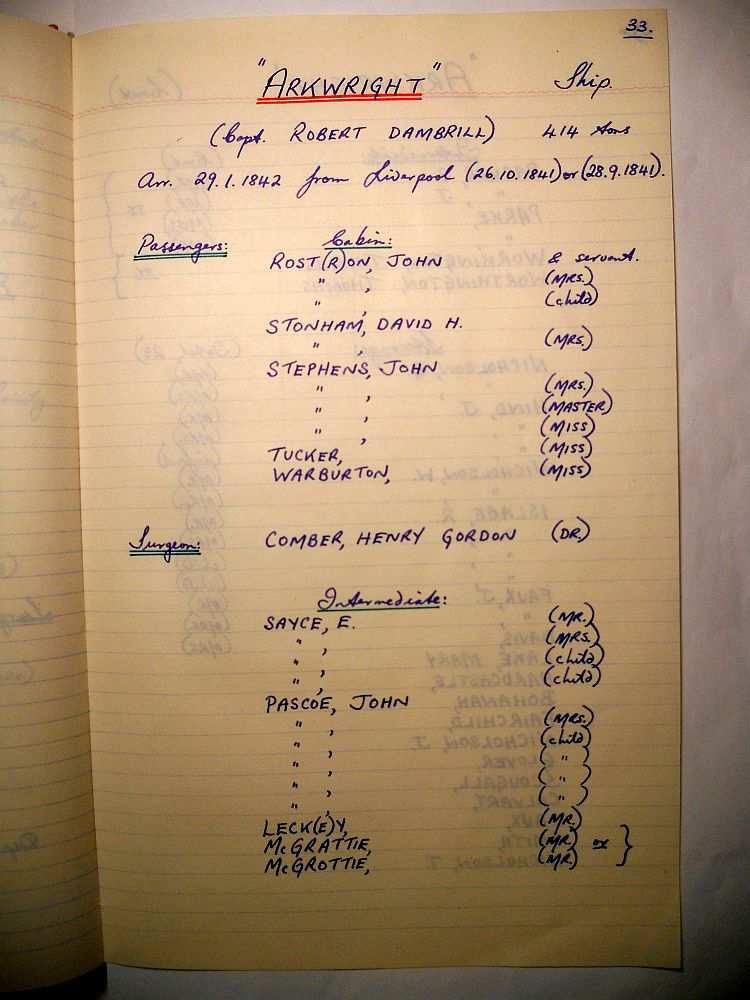 33.
"ARKWRIGHT" Ship.
(Capt. ROBERT DAMBRILL) 414 tons
Arr. 29.1.1842 from Liverpool (26.10.1841) or (28.9.1841).
Passengers: Cabin:
ROST(R)ON, JOHN & servant.
" , (MRS.)
" , (child)
STONHAM, DAVID H.
" , (MRS.)
STEPHENS, JOHN
" , (MRS.)
" , (MASTER)
" , (MISS)
TUCKER, (MISS)
WARBURTON, (MISS)
Surgeon: COMBER, HENRY GORDON (DR.)
Intermediate:
SAYCE, E. (MR.)
" , (MRS.)
" , (child)
" , (child)
PASCOE, JOHN
" , (MRS.)
" , (child)
" , ( " )
" , ( " )
" , ( " )
LECK(E)Y, (MR.)
McGRATTIE, (MR.) or }
McGROTTIE, (MR.)